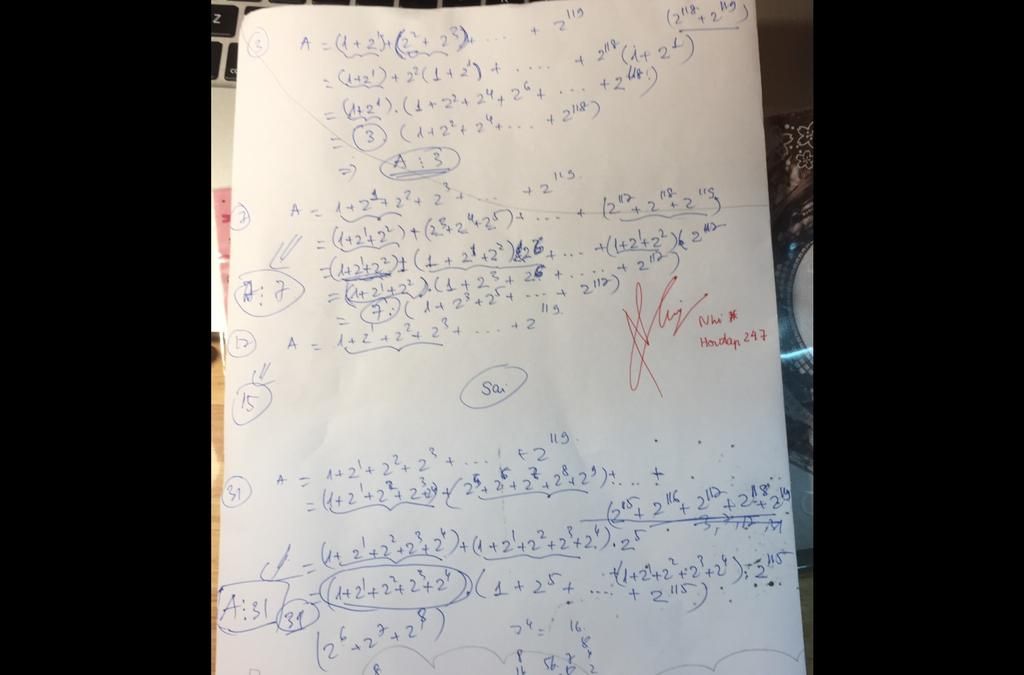 ③ A = (1+2¹)+(2²+2³)+ ... + 2¹¹⁹ (2¹¹⁸+2¹¹⁹)
= (1+2¹)+2²(1+2¹)+ .... + 2¹¹⁸(1+2¹)
= (1+2¹).(1+2²+2⁴+2⁶+ ... +2¹¹⁸)
= 3.(1+2²+2⁴+ ... +2¹¹⁸)
=> A⋮3
⑦ A = 1+2¹+2²+2³+ ... +2¹¹⁹
= (1+2¹+2²)+(2³+2⁴+2⁵)+ ... + (2¹¹⁷+2¹¹⁸+2¹¹⁹)
= (1+2¹+2²)+(1+2¹+2²) ... +(1+2¹+2²).2¹¹⁷
A⋮7 = (1+2¹+2²).(1+2³+2⁶+ ..... +2¹¹⁷)
= 7.(1+2³+2⁵+ ... +2¹¹⁷)
Nhi
Hoidap247
⑰ A = 1+2¹+2²+2³+ ... +2¹¹⁹
15 Sai
㉛ A = 1+2¹+2²+2³+ ... +2¹¹⁹
= (1+2¹+2²+2³+2⁴)+(2⁵+2⁶+2⁷+2⁸+2⁹)+ ... +
(2¹¹⁵+2¹¹⁶+2¹¹⁷+2¹¹⁸+2¹¹⁹)
= (1+2¹+2²+2³+2⁴)+(1+2¹+2²+2³+2⁴).2⁵
... +(1+2¹+2²+2³+2⁴).2¹¹⁵
A⋮31 31 = (1+2¹+2²+2³+2⁴).(1+2⁵+ ... +2¹¹⁵)
(2⁶+2⁷+2⁸) 2⁴= 16